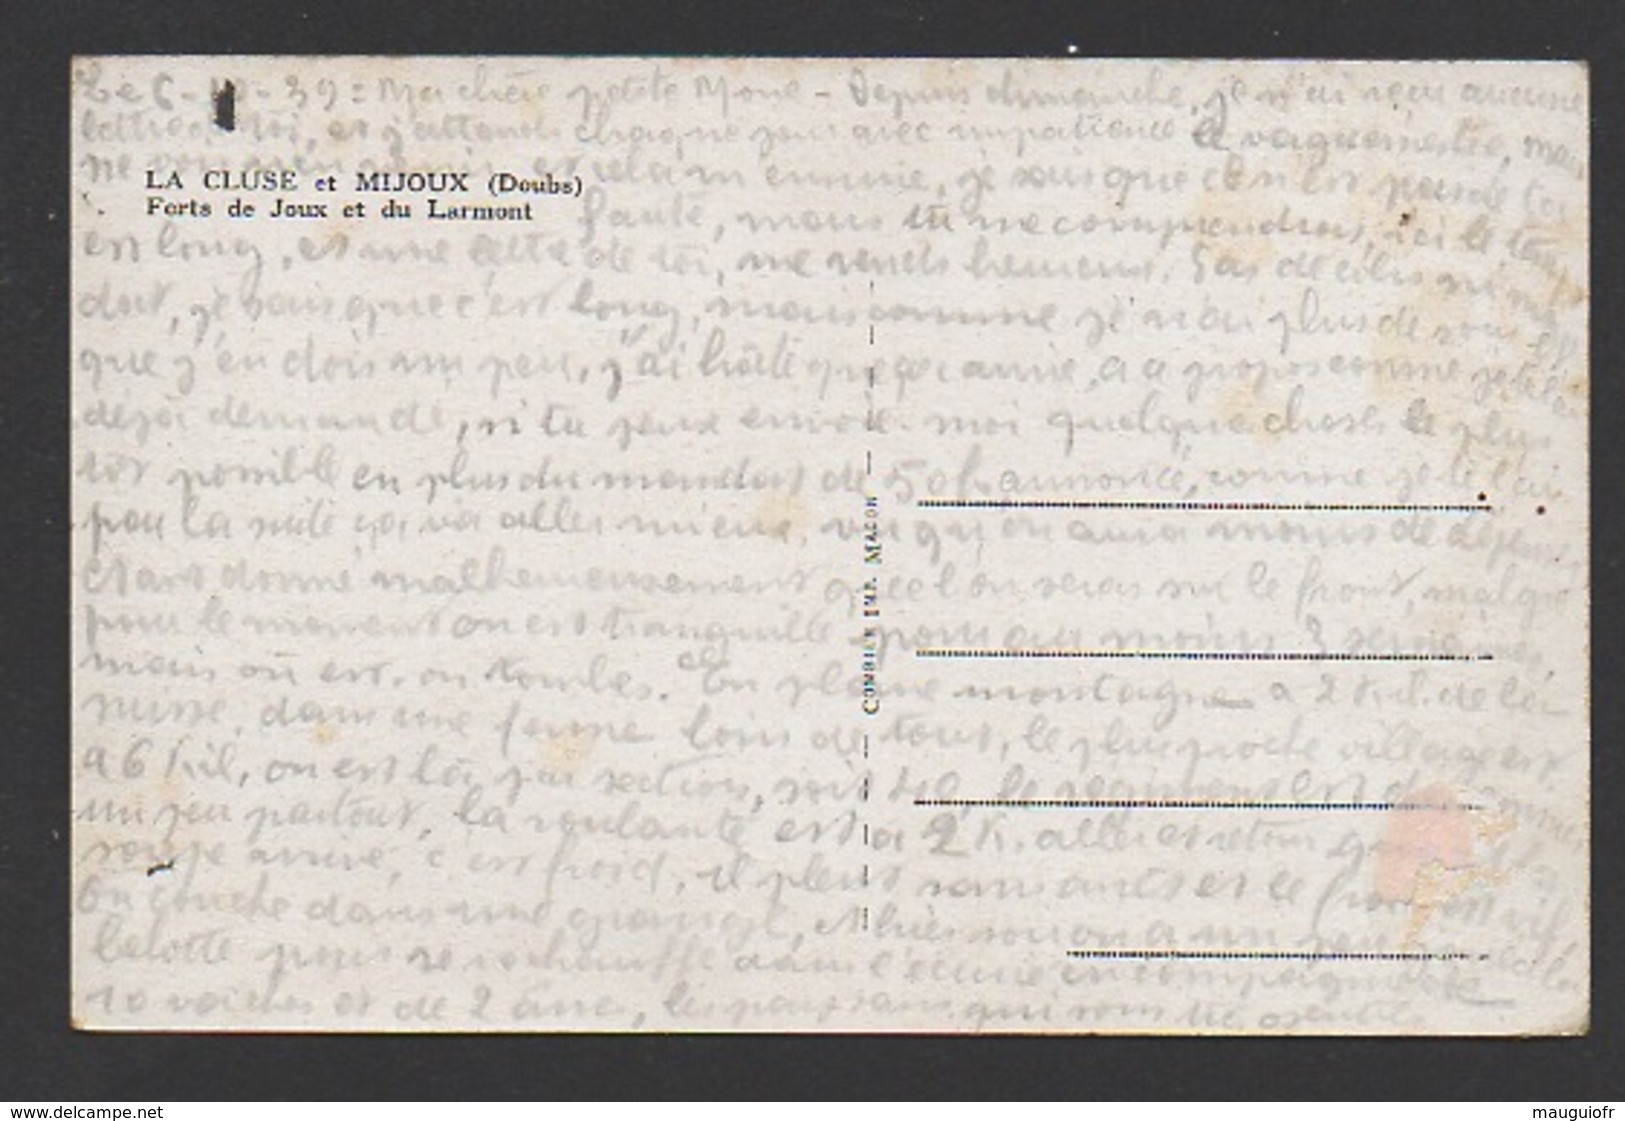 Le 6-10-39 = Ma chère petite Mone - Depuis dimanche, je n'ai reçu aucune
lettre de toi, et j'attends chaque jour avec impatience le vaguemestre, mais
ne vois rien venir et cela m'ennuie, je sais que c'en est pas de ta
LA CLUSE et MIJOUX (Doubs)
Forts de Joux et du Larmont
faute, mais tu me comprendras, ici le temps
est long, et une lettre de toi, me rends heureux. Pas de colis ni
doit, je sais que c'est long, mais comme je n'ai plus de sous et
que j'en dois un peu, j'ai hâte que ça arrive, a propos comme je te l'ai
déjà demandé, si tu peux envoie-moi quelque chose le plus
tôt possible en plus du mandat de 50 f annoncé, comme je te l'ai
pour la suite ça va aller mieux, vu qu'on aura moins de dépenses
étant donné malheureusement que l'on seras sur le front, malgré
pour le moment on est tranquille pour au moins 3 semaines,
mais où est-on tombés. En pleine montagne a 2 Kil. de la
suisse, dans une ferme loin de tout, le plus proche village est
a 6 Kil, on est là par section, soit 40, le régiment est
un peu partout, la roulante est a 2 K. aller et retour
soupe arrive, c'est froid, il pleut sans arrêt et le froid est vif,
on couche dans une grange, et hier soir on a un peu joué a la
belotte pour se rechauffé dans l'écurie en compagnie de
10 vaches et de 2 ânes, les paysans qui sont très gentils
COMBIER IMP. MACON
delcampe.net
mauguiofr